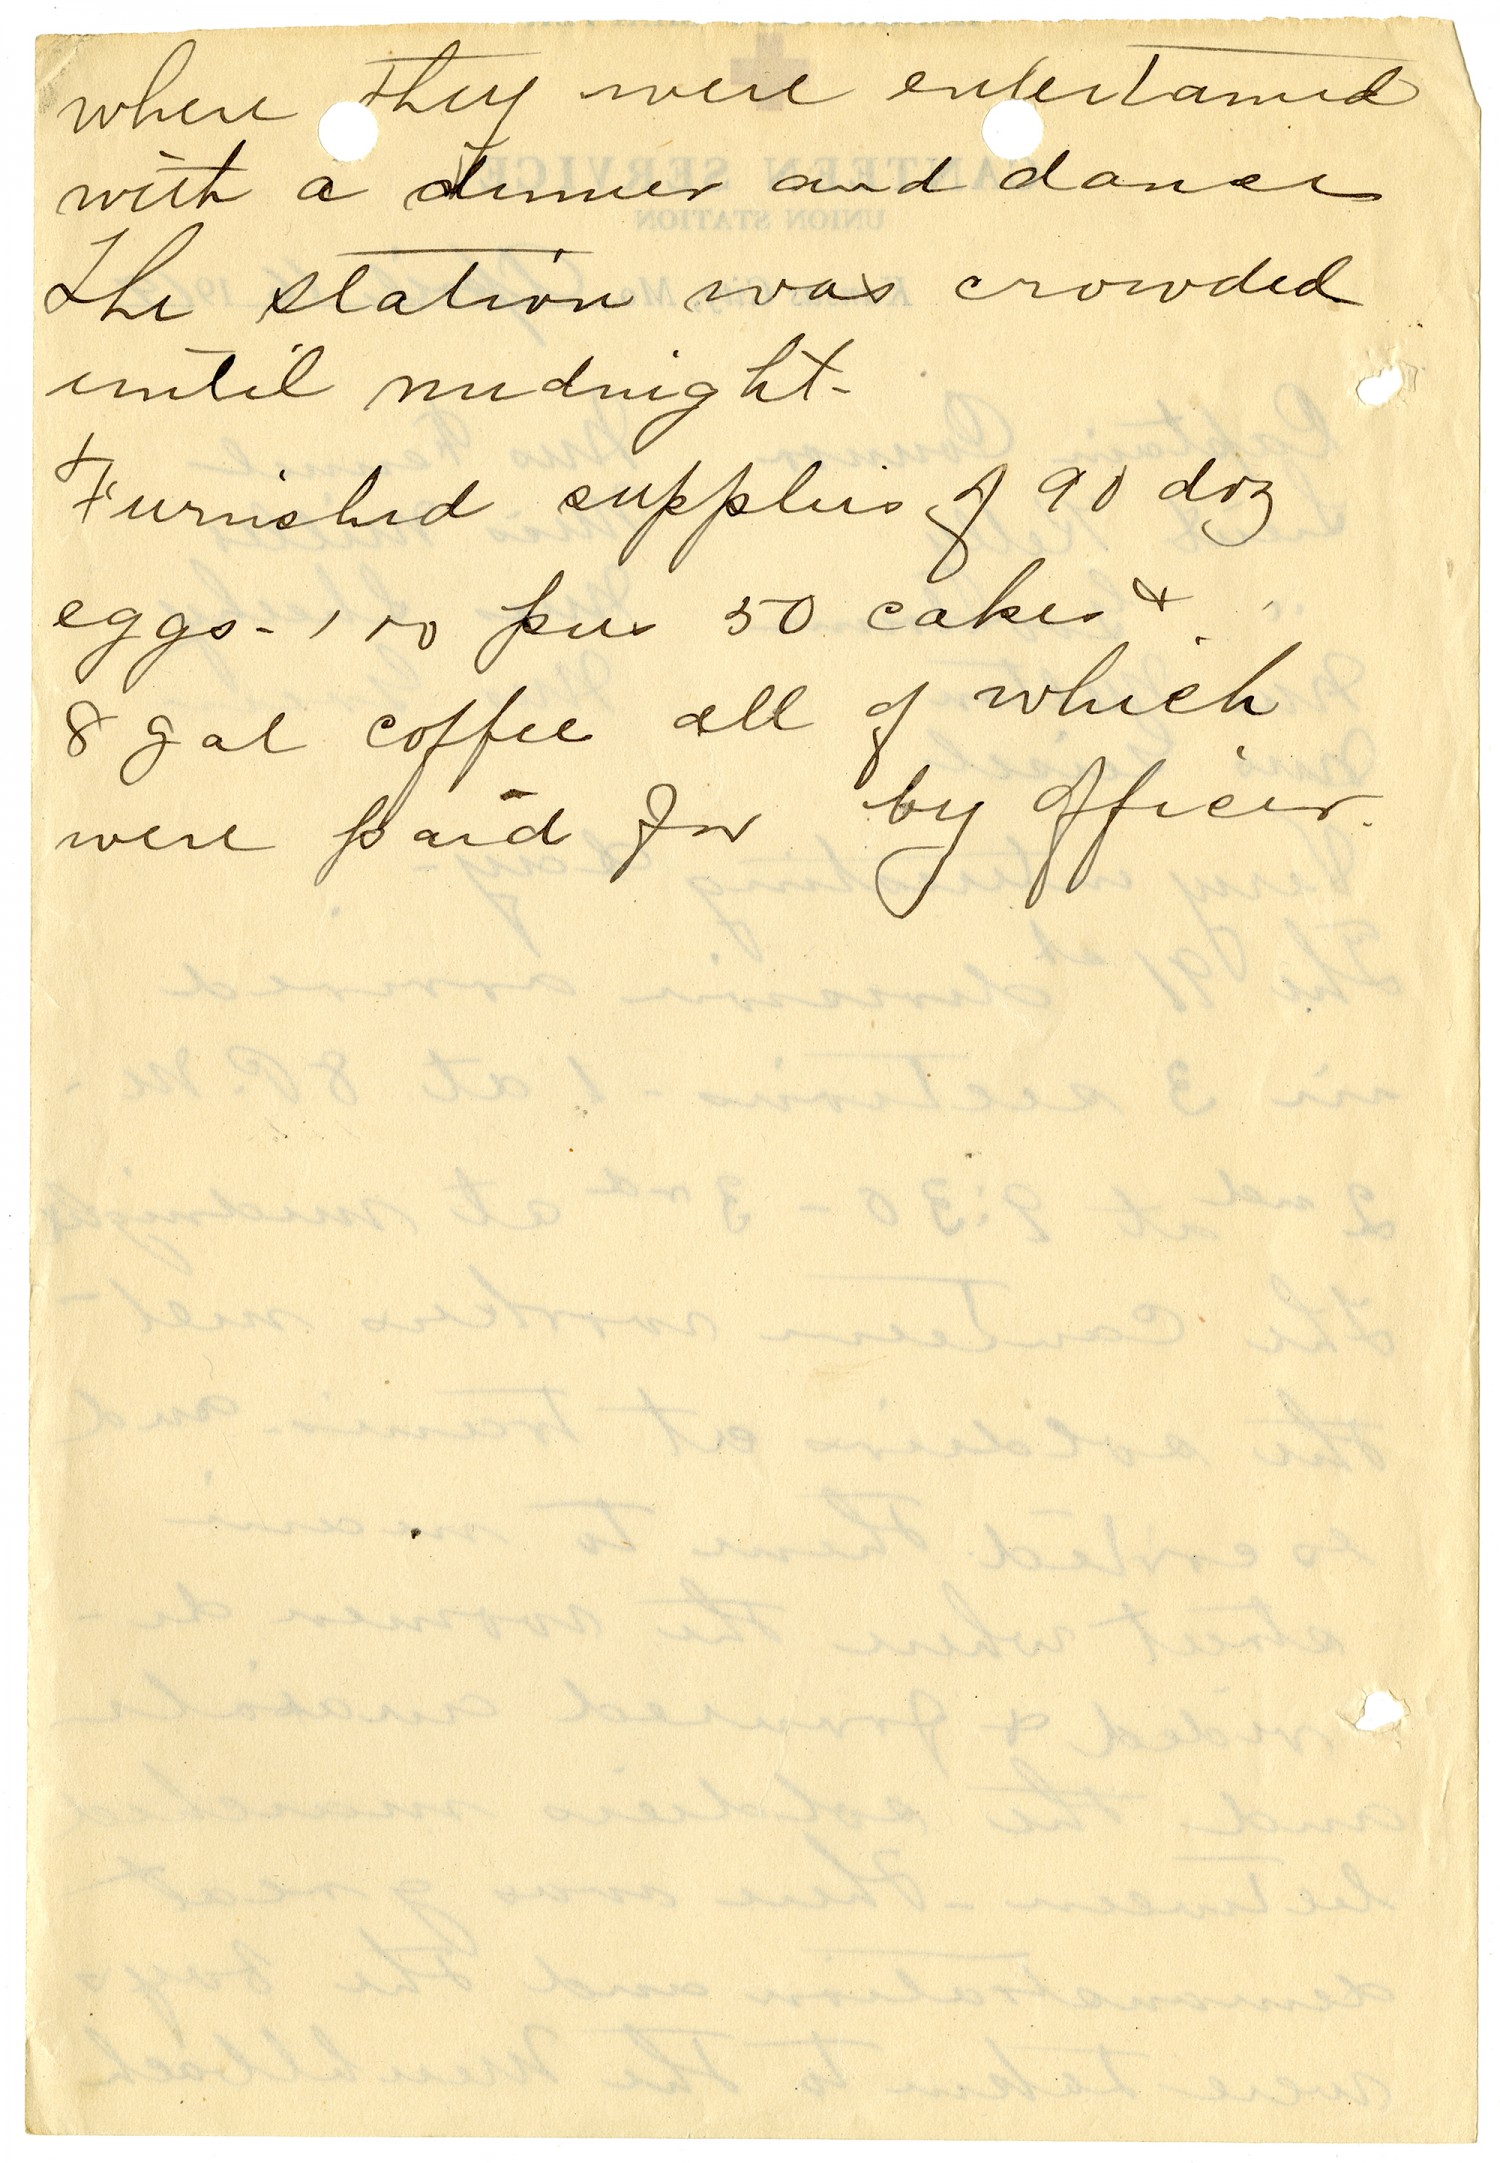 where they were entertained
with a dinner and dance
The station was crowded
until midnight-
Furnished supplies of 90 doz
eggs - 100 pies 50 cakes &
8 gal coffee all of which
were paid for by officer.